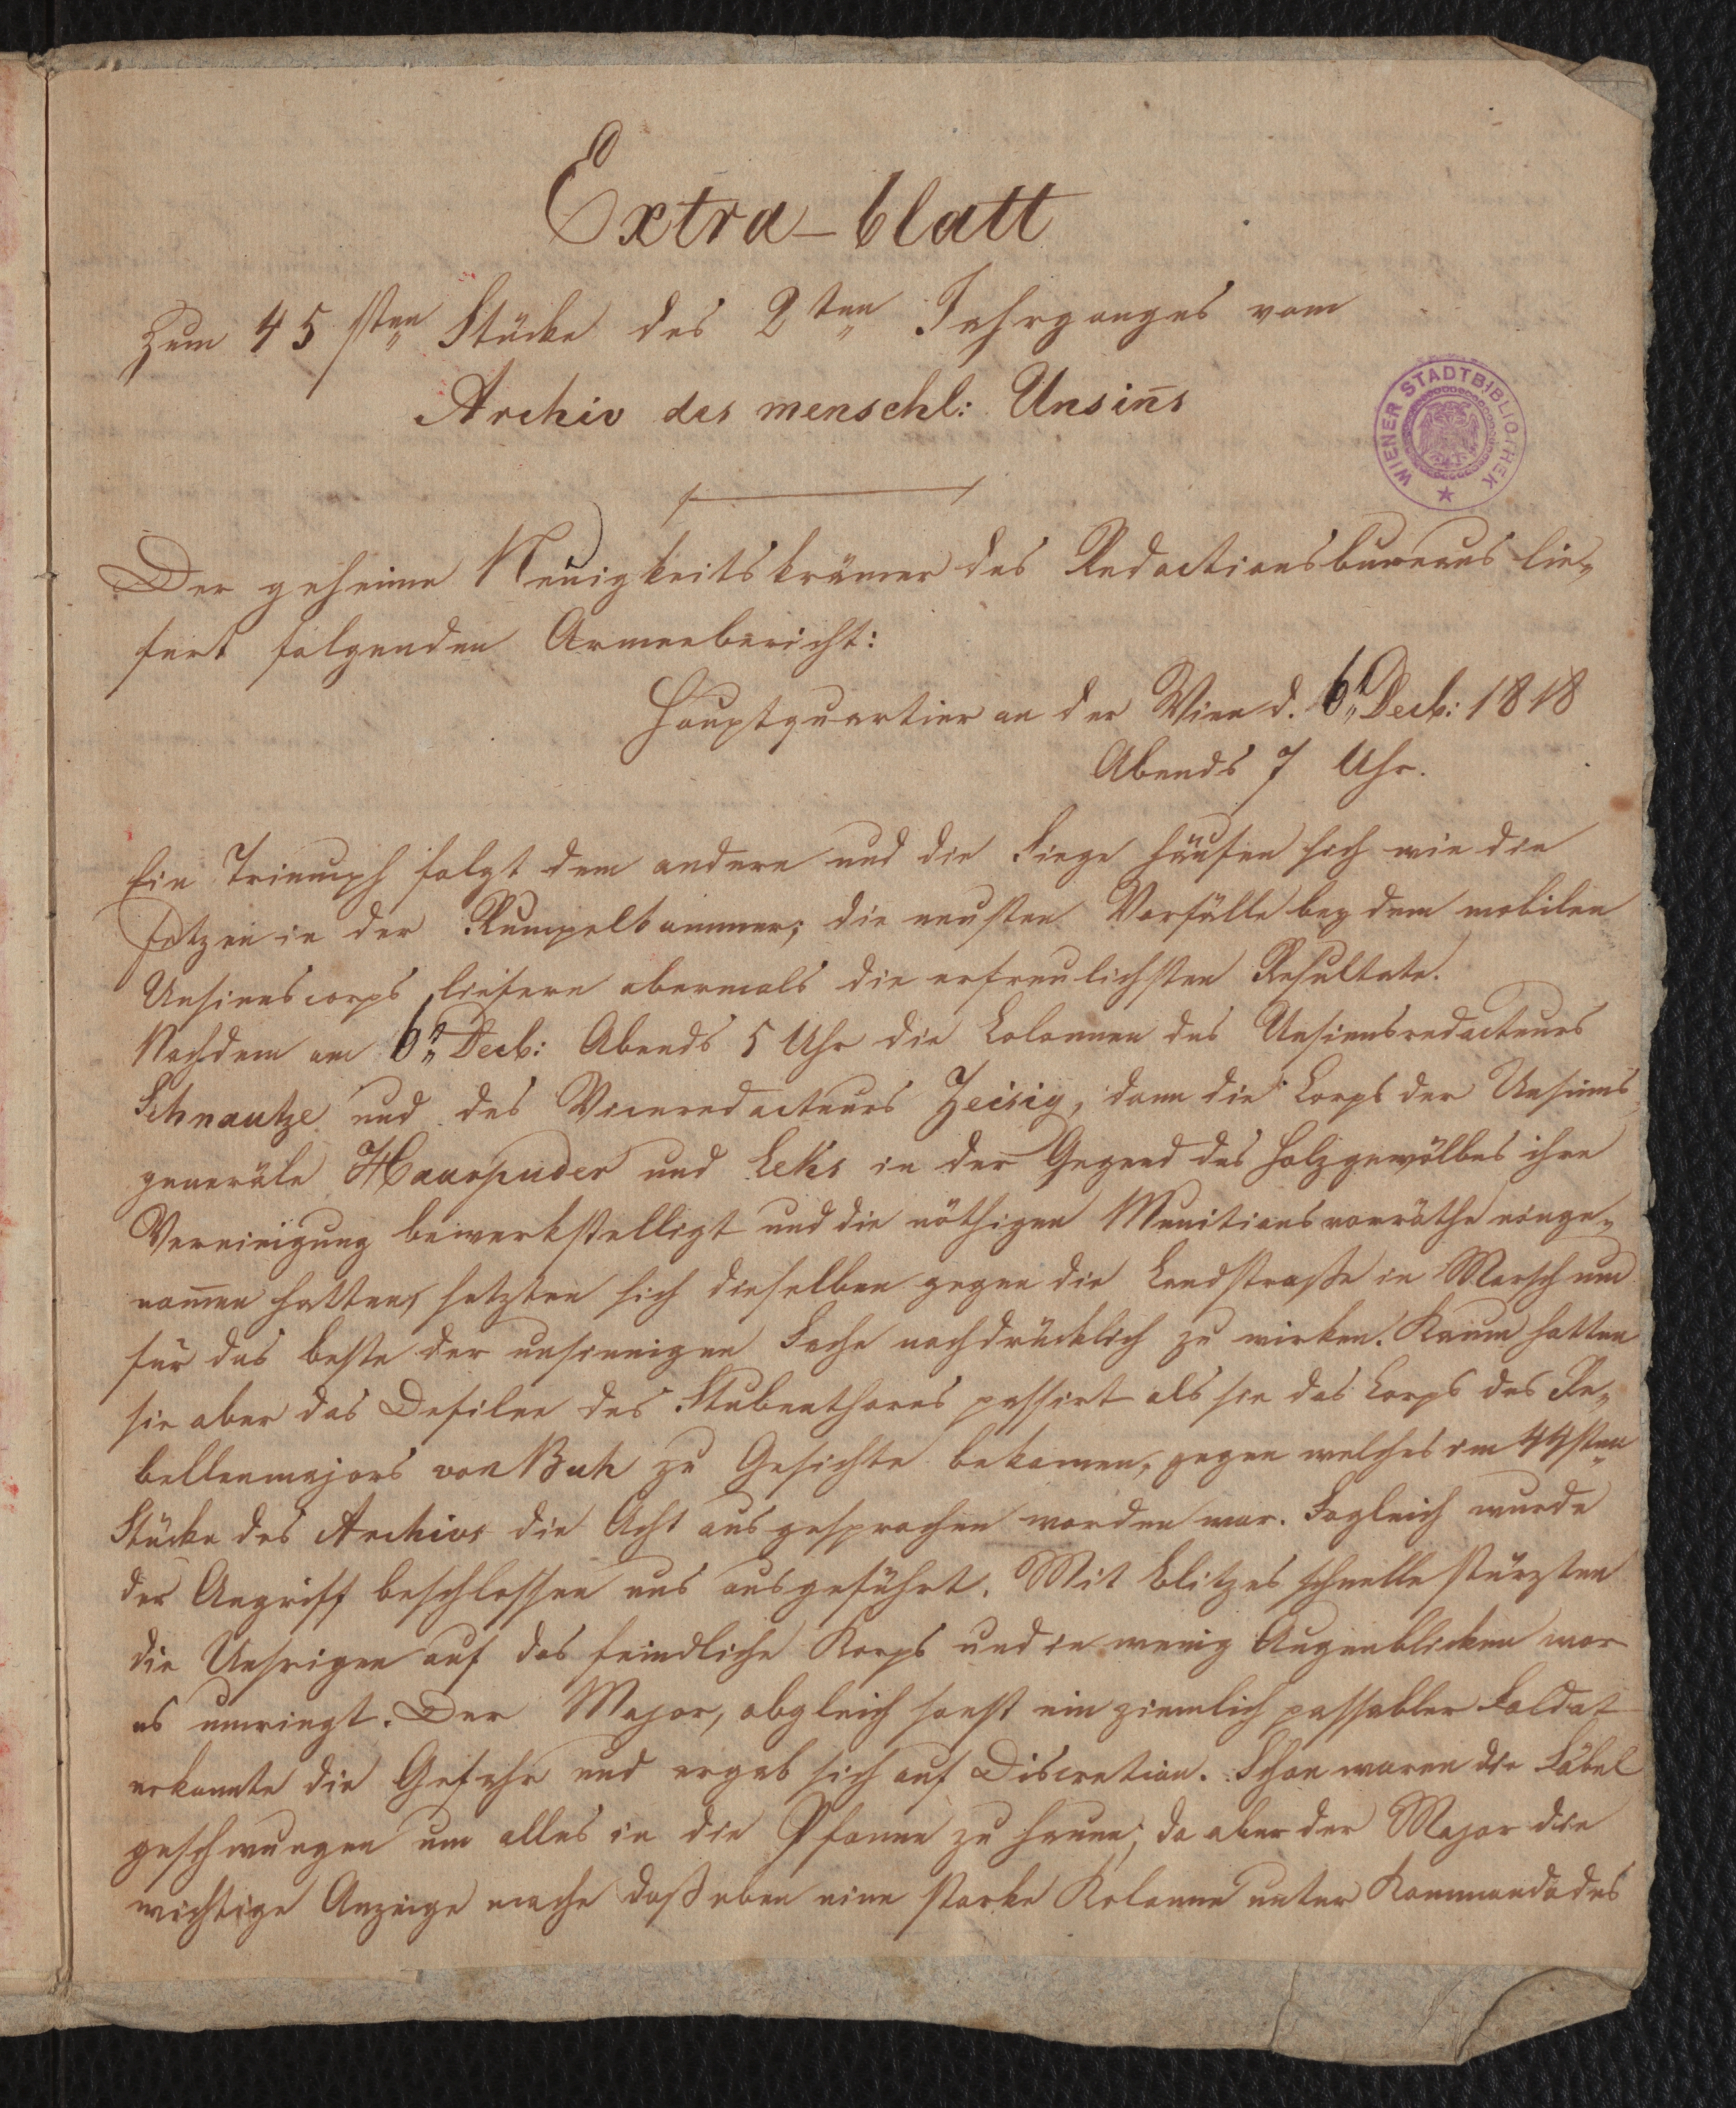 Extra-blatt
Zum 45sten Stücke des 2ten Jahrganges vom
Archiv des menschl: Unsin̄s
WIENER STADTBIBLIOTHEK
Der geheime Neuigkeitskrämer des Redactionsbureaus lie-
fert folgenden Armeebericht:
Hauptquartier an der Wien d. 6t Decb: 1818
Abends 7 Uhr.
Ein Triumph folgt dem andern und die Siege häufen sich wie die
Fetzen in der Rumpelkammer; die neusten Vorfälle bey dem mobilen
Unsinnscorps liefern abermals die erfreulichsten Resultate.
Nachdem am 6tn Decb: Abends 5 Uhr die Colonnen des Unsinnsredacteurs
Schnautze und des Viceredacteurs Zeisig, dann die Corps der Unsinns
generäle Haarpuder und Leks in der Gegend des Holzgewölbes ihre
Vereinigung bewerkstelligt und die nöthigen Munitionsvorräthe einge-
nom̄en hatten, setzten sich dieselben gegen die Landstrasse in Marsch um
für das beste der unsinnigen Sache nachdrücklich zu wirken. Kaum hatten
sie aber das Defilee des Stubenthores passirt als sie das Corps des Re-
bellenmajors von Buh zu Gesichte bekamen, gegen welches im 44sten
Stücke des Archivs die Acht ausgesprochen worden war. Sogleich wurde
der Angriff beschlossen uns ausgeführt. Mit Blitzes schnelle stürzten
die Unsrigen auf das feindliche Korps und in wenig Augenblicken war
es umringt. Der Major, obgleich sonst ein ziemlich passabler Soldat
erkannte die Gefahr und ergab sich auf Discretion. Schon waren die Säbel
geschwungen um alles in die Pfanne zu hauen; da aber der Major die
wichtige Anzeige mache daß eben eine starke Kolonne unter Kommando des